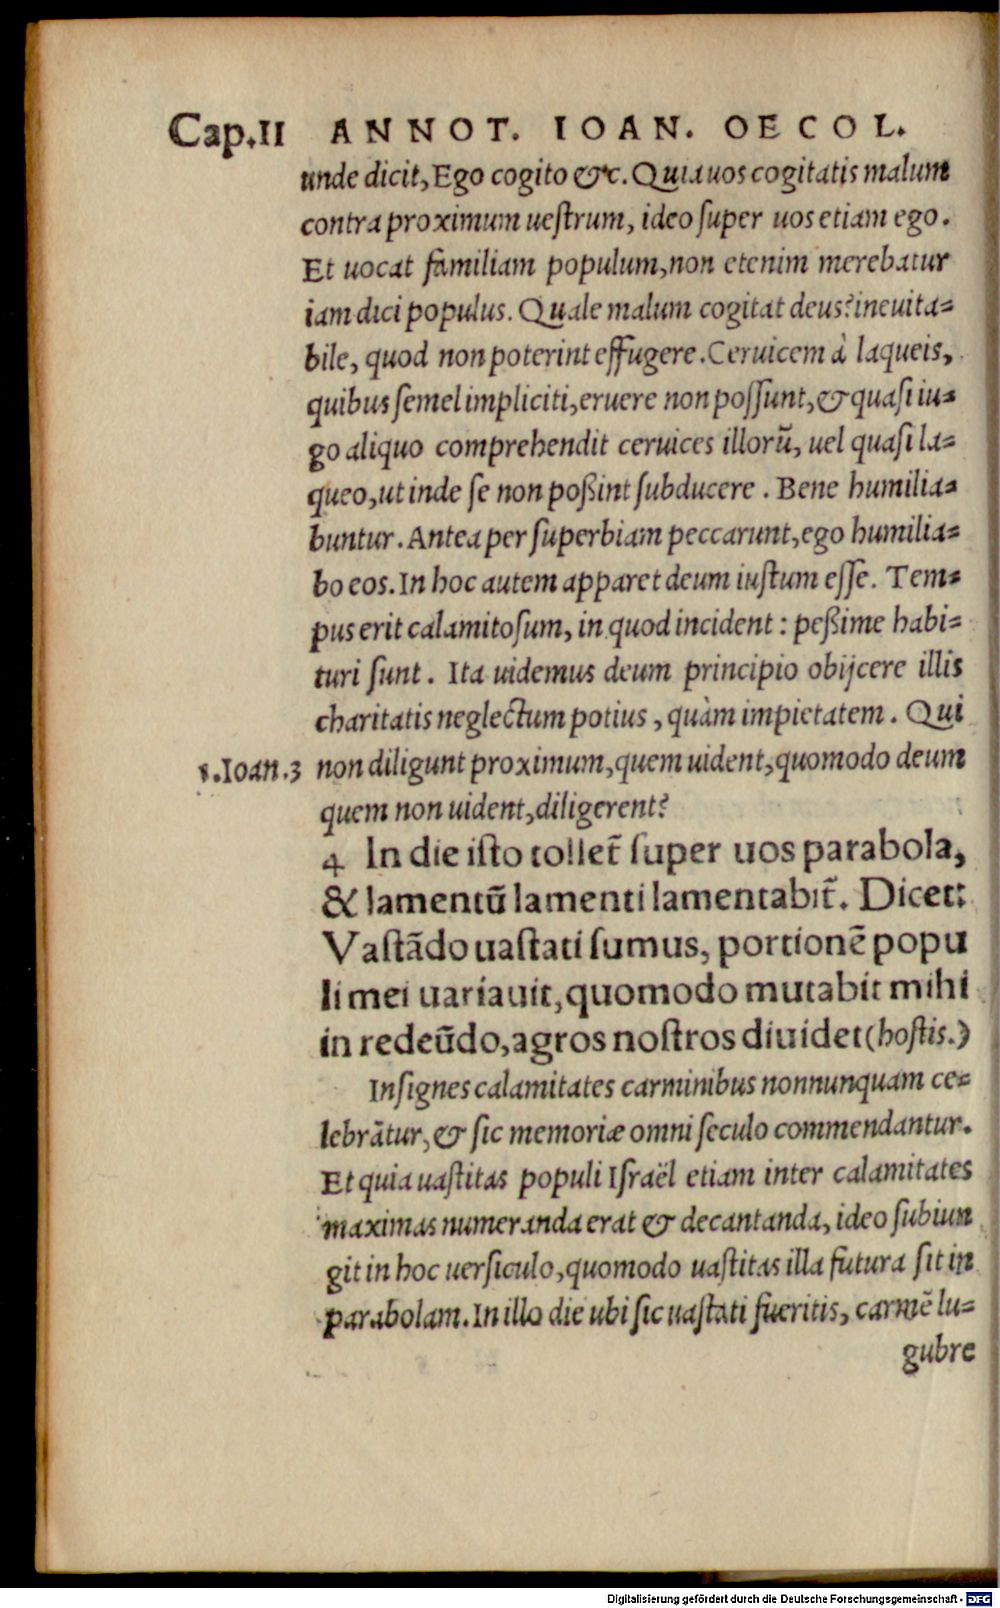 Cap.II ANNOT. IOAN. OECOL.
unde dicit, Ego cogito &c. Quia uos cogitatis malum
contra proximum uestrum, ideo super uos etiam ego.
Et uocat familiam populum, non etenim merebatur
iam dici populus. Quale malum cogitat deus? ineuita=
bile, quod non poterint effugere. Ceruicem à laqueis,
quibus semel impliciti, eruere non possunt, & quasi iu=
go aliquo comprehendit ceruices illorũ, uel quasi la=
queo, ut inde se non poßint subducere. Bene humilia=
buntur. Antea per superbiam peccarunt, ego humilia=
bo eos. In hoc autem apparet deum iustum esse. Tem=
pus erit calamitosum, in quod incident : peßime habi=
turi sunt. Ita uidemus deum principio obijcere illis
charitatis neglectum potius, quàm impietatem. Qui
1.Ioan.3 non diligunt proximum, quem uident, quomodo deum
quem non uident, diligerent?
4 In die isto tollet̃ super uos parabola,
& lamentũ lamenti lamentabit̃. Dicet:
Vastãdo uastati sumus, portionẽ popu
li mei uariauit, quomodo mutabit mihi
in redeũdo, agros nostros diuidet (hostis.)
Insignes calamitates carminibus nonnunquam ce=
lebrãtur, & sic memoriæ omni seculo commendantur.
Et quia uastitas populi Israël etiam inter calamitates
maximas numeranda erat & decantanda, ideo subiun
git in hoc uersiculo, quomodo uastitas illa futura sit in
parabolam. In illo die ubi sic uastati fueritis, carmẽ lu=
gubre
Digitalisierung gefördert durch die Deutsche Forschungsgemeinschaft - DFG